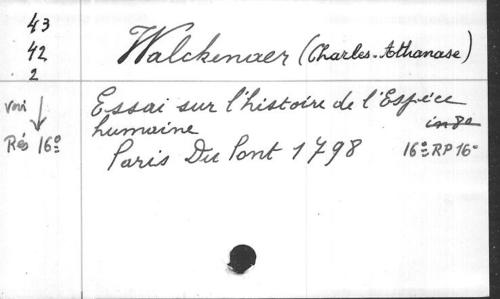 43
42
2
Walckenaer (Charles-Athanase)
voir
↓
Rés 16º
Essai sur l'histoire de l'Espèce
humaine
in 8º
Paris Du Pont 1798
16º RP 16º